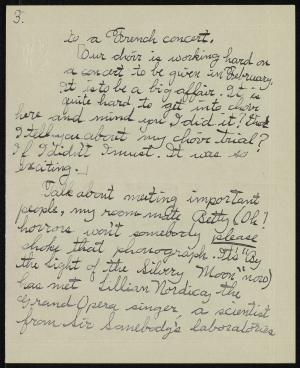 3.
to a French concert.
Our choir is working hard on
a concert to be given in February.
It is to be a big affair. It is
quite hard to get into choir
here and mind you I did it!
I tell you about my choir trial?
If I didn't I must. It was so
exciting.
Talk about meeting important
people, my room-mate Betty (Oh!
horrors won't somebody please
choke that phonograph. It's "By
the Light of the Silvery Moon" now)
has met Lillian Nordica, the
Grand Opera singer, a scientist
from Sir Somebody's laboratories